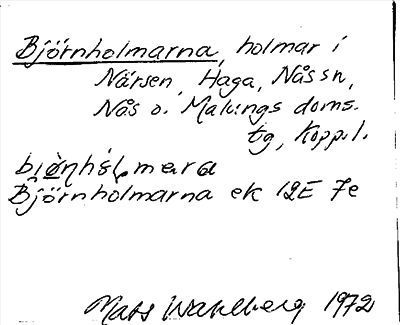 Björnholmarna, holmar i
Närsen, Haga, Nås sn,
Nås o. Malungs doms.
tg, Kopp. l.
Björnholmarna ek 12E 7e
Mats Wahlberg 1972